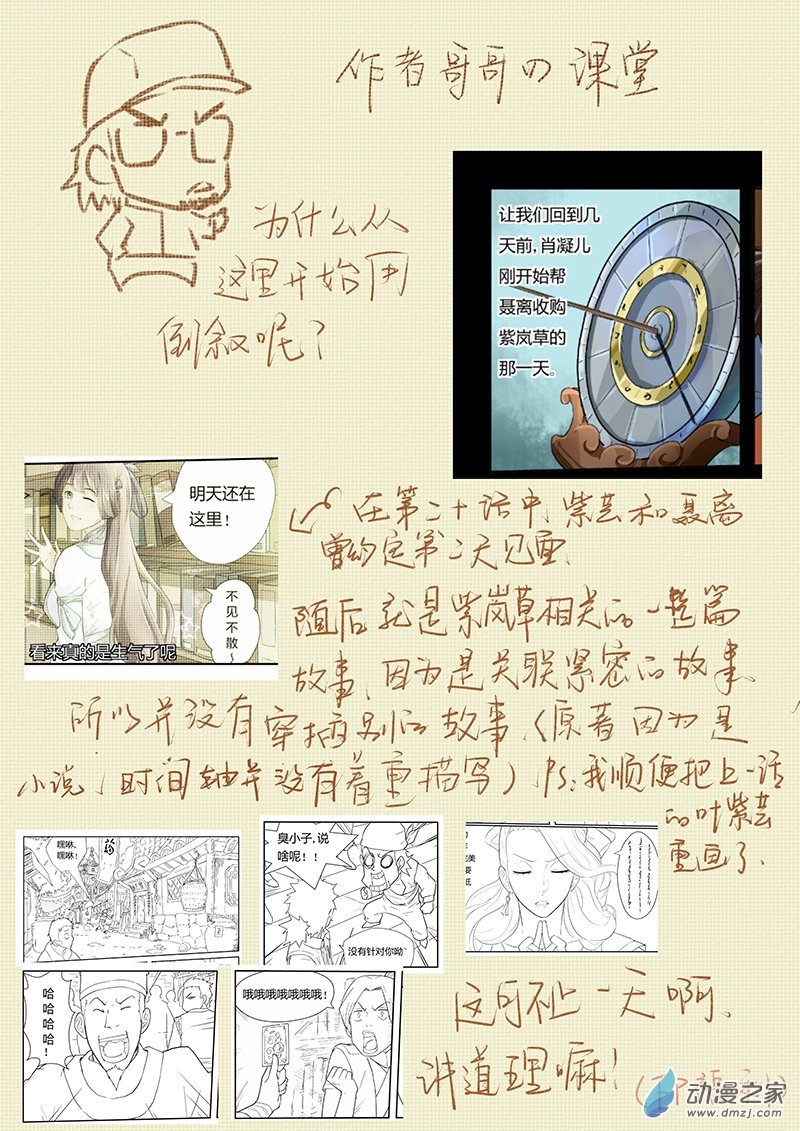 作者哥哥の课堂
为什么从
这里开始用
倒叙呢？
让我们回到几
天前，肖凝儿
刚开始帮
聂离收购
紫岚草的
那一天。
明天还在
这里！
不见不散~
看来真的是生气了呢
在第二十话中，紫芸和聂离
曾约定第二天见面、
随后就是紫岚草相关的一整篇
故事、因为是关联紧密的故事、
所以并没有穿插别的故事、（原著因为是
小说，时间轴并没有着重描写）、Ps：我顺便把上一话
的叶紫芸
重画了、
嘿咻、
嘿咻！
臭小子，说
啥呢！！
没有针对你呦
美
要
低
哈哈哈哈！
哦哦哦哦哦哦哦！
这可不止一天啊、
讲道理嘛！
动漫之家
www.dmzj.com